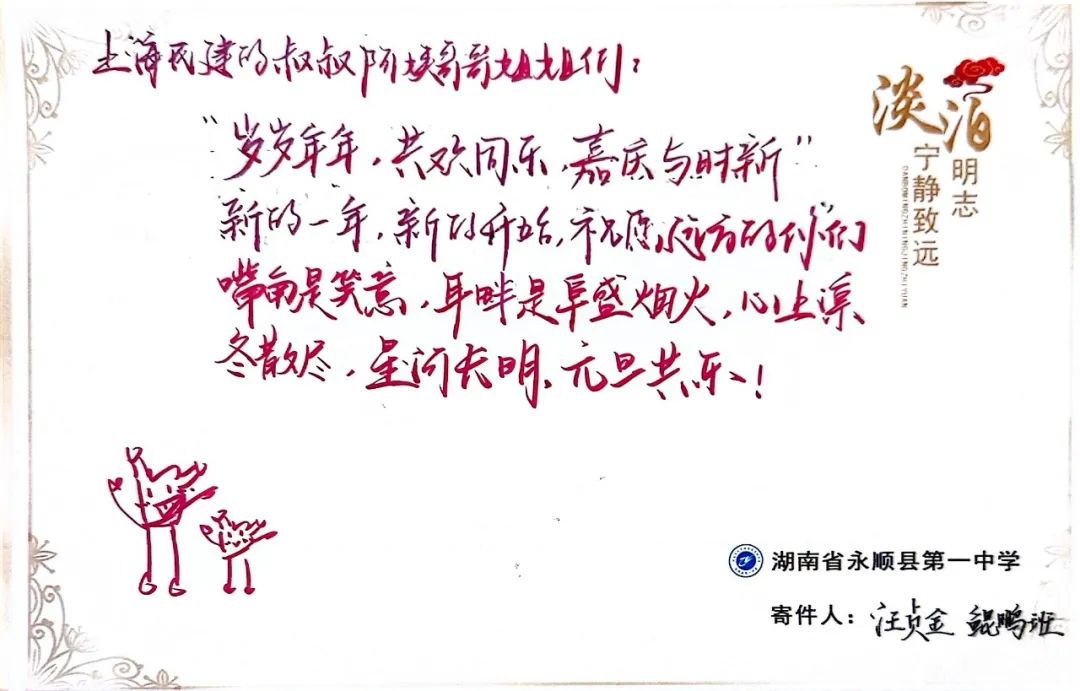 上海民建的叔叔阿姨哥哥姐姐们：
“岁岁年年，共欢同乐，嘉庆与时新”
新的一年，新的开始，祝愿远方的你们
嘴角是笑意，耳畔是阜盛烟火，心上凛
冬散尽，星河长明、元旦共乐！
淡泊
明志
宁静致远
DANBOMINGZHININGJINGZHIYUAN
湖南省永顺县第一中学
寄件人：汪贞金 鲲鹏班